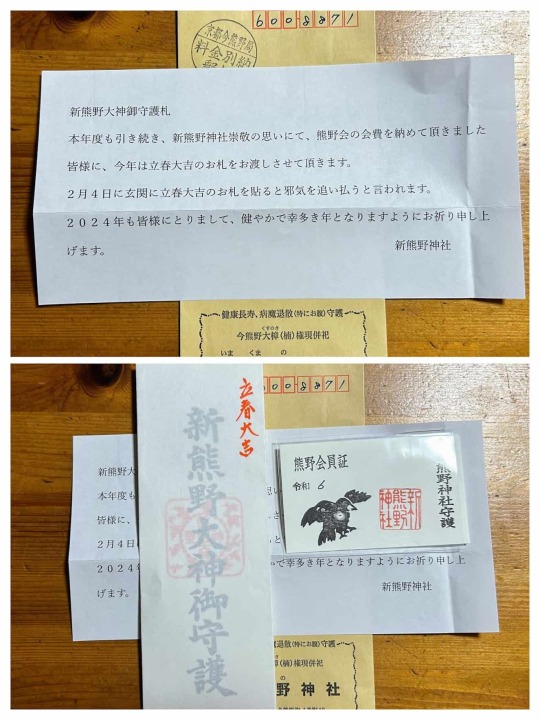 600-8871
京都今熊野局
料金別納
郵
新熊野大神御守護札
本年度も引き続き、新熊野神社崇敬の思いにて、熊野会の会費を納めて頂きました
皆様に、今年は立春大吉のお札をお渡しさせて頂きます。
２月４日に玄関に立春大吉のお札を貼ると邪気を追い払うと言われます。
２０２４年も皆様にとりまして、健やかで幸多き年となりますようにお祈り申し上
げます。
新熊野神社
健康長寿、病魔退散(特にお腹)守護
くすのき
今熊野大樟(楠)権現併祀
いま くま の
00-8871
立春大吉
新熊野大神御守護
新熊野大
本年度も
皆様に、
２月４日
２０２４年
げます。
思い
さ
と
かで幸多き年となりますようにお祈り申し上
新熊野神社
熊野会員証
令和 6
熊野神社守護
新熊野神社
退散(特にお腹)守護
のき
樟(楠)権現併祀
の
野神社